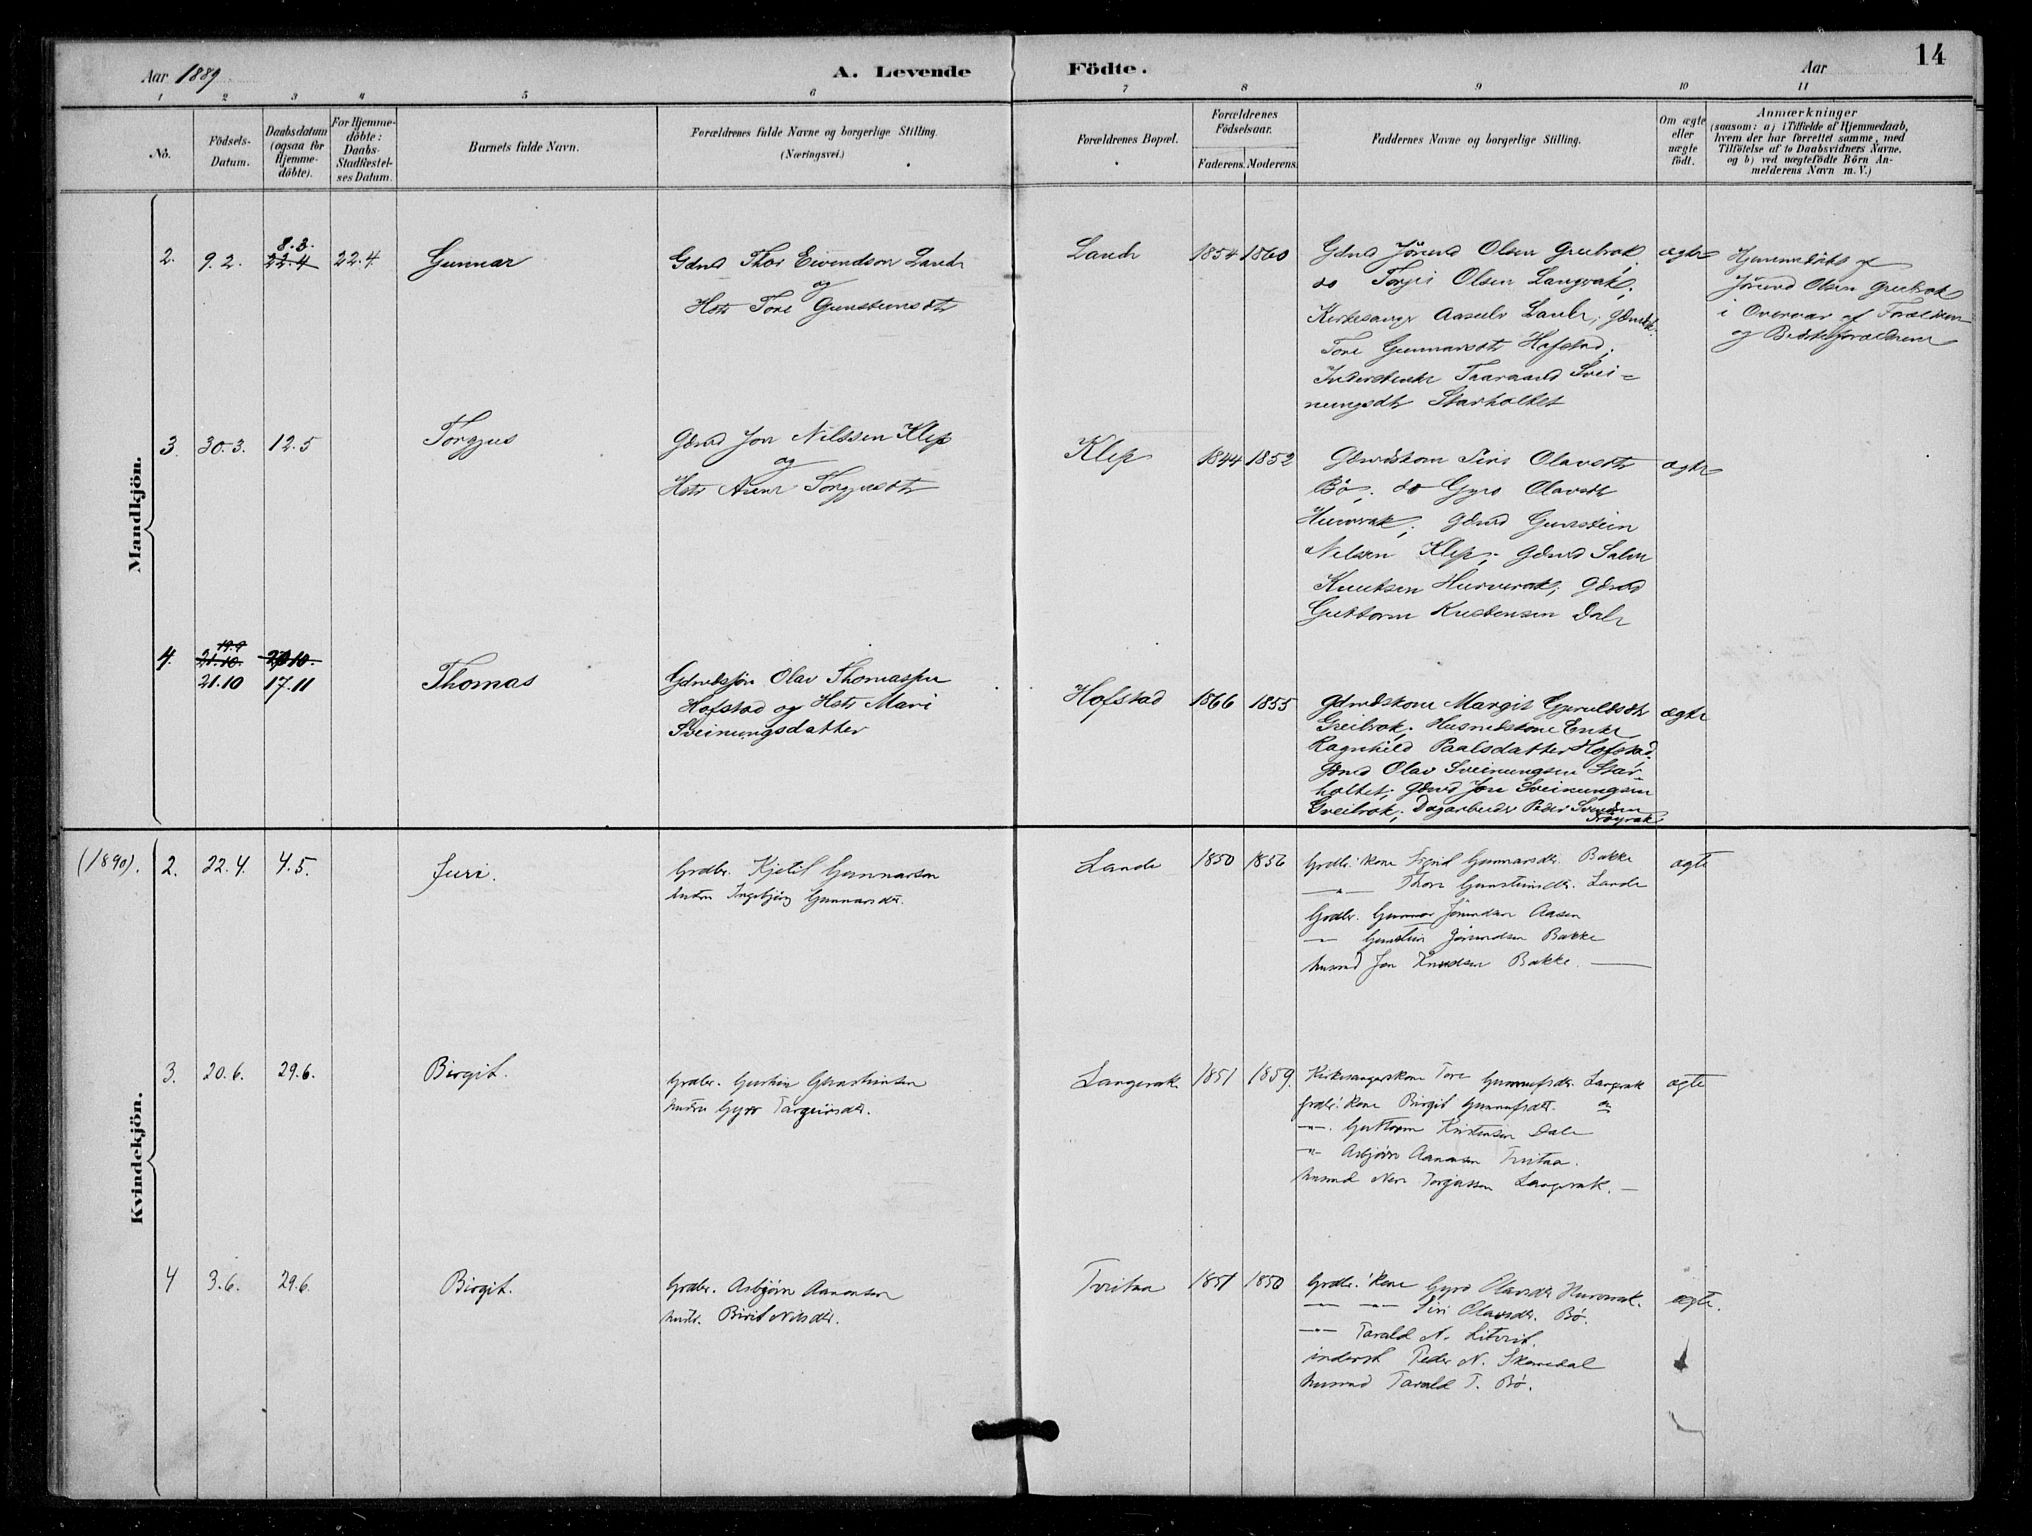 14
Aar 1889
A. Levende
Födte.
Aar
1 2 3 4 5 6 7 8 9 10 11
No.
Födsels-
Datum.
Daabsdatum
(ogsaa for
Hjemme-
döbte).
For Hjemme-
döbte:
Daabs-
Stadfæstel-
ses Datum.
Barnets fulde Navn.
Forældrenes fulde Navne og borgerlige Stilling.
(Næringsvei.)
Forældrenes Bopæl.
Forældrenes
Födselsaar.
Faderens. Moderens.
Faddernes Navne og borgerlige Stilling.
Om ægte
eller
uægte
födt.
Anmærkninger
(saasom: a) i Tilfælde af Hjemmedaab,
hvem der har forrettet samme, med
Tilföielse af to Daabsvidners Navne,
og b) ved uægtefödte Börn An-
melderens Navn m. V.)
Mandkjön.
2. 9.2. 8.3. 22.4 22.4 Gunnar
Gdmd Thor Eivendson Lande
og
Hst Tore Gunsteinsdtr
Lande 1854 1860
Gdmd Jörund Olsen Greibrok
do Torjei Olsen Langrak;
Kirkesanger Aasulv Lande;
Tore Gunnarsdtr Hofstad;
Inderstenke Taaraand Svei=
nungsdtr Starholtet
ægte
Hjemmedöbt af
Jörund Olsen Greibrok
i Overvær af Forældrene
og Bedsteforældrene
3. 30.3. 12.5 Torgjus
Gdmd Jon Nilssen Klep
og
Hst Torgjusdtr
Klep 1844 1852
Gdmdskone Siri Olavsdtr
Bö; do Gyro Olavsdtr
Hurvrak; Gdmd Gunstein
Nilsen Klep; Gdmd Salve
Knutsen Hurverak; Gdmd
Guttorm Kristensen Dale
ægte
4. 19.9 21.10. 20.10.
21.10 17.11 Thomas
Gdmdssön Olav Thomassen
Hofstad og Hst Mari
Sveinungsdatter
Hofstad 1866 1855
Gdmdskone Margit Gjeruldsdtr
Greibrok; Husmdskone Enke
Ragnhild Paalsdatter Hofstad;
Gdmd Olav Sveinungsen Star-
holtet; Gdmd Jon Sveinungsen
Greibrok; Dagarbeider Peder Svendsen
Tröyrak
ægte
Kvindekjön.
(1890). 2. 22.4. 4.5. Juri.
Grdbr. Kjetil Gunnarson
hustru Ingebjörg Gunnarsdtr.
Lande 1850 1856
Grdbr. kone Sigrid Gunnarsdtr. Bakke
—"— Thore Gunsteinsdtr. Lande
Grdbr. Gunnar Jörundsen Aasen
—"— Gunstein Jörundsen Bakke
husmd Jon Knudsen Bakke. —
ægte
3. 20.6. 29.6. Birgit.
Grdbr. Gustein Gunsteinsen
hustru Gyro Targeirsdtr.
Langerak 1851 1859.
Kirkesangerskone Tore Gunnufsdtr. Langerak
Grdbr. kone Birgit Gunnufsdtr. do
—"—. Guttorm Kristensen Dale
—"— Asbjörn Aanonsen Tveitaa.
husmd Nere Torjussen Langerak. —
ægte
4 3.6. 29.6. Birgit.
Grdbr. Asbjörn Aanonsen
hustr. Birit Nilsdtr.
Tveitaa 1851 1850
Grdbr. kone Gyro Olavsdtr Hurverak.
—"— —"— Siri Olavsdtr. Bö.
—"— Tarald N. Litveit
inderst Peder N. Skaredal
husmd Tarald T. Bö.
ægte.